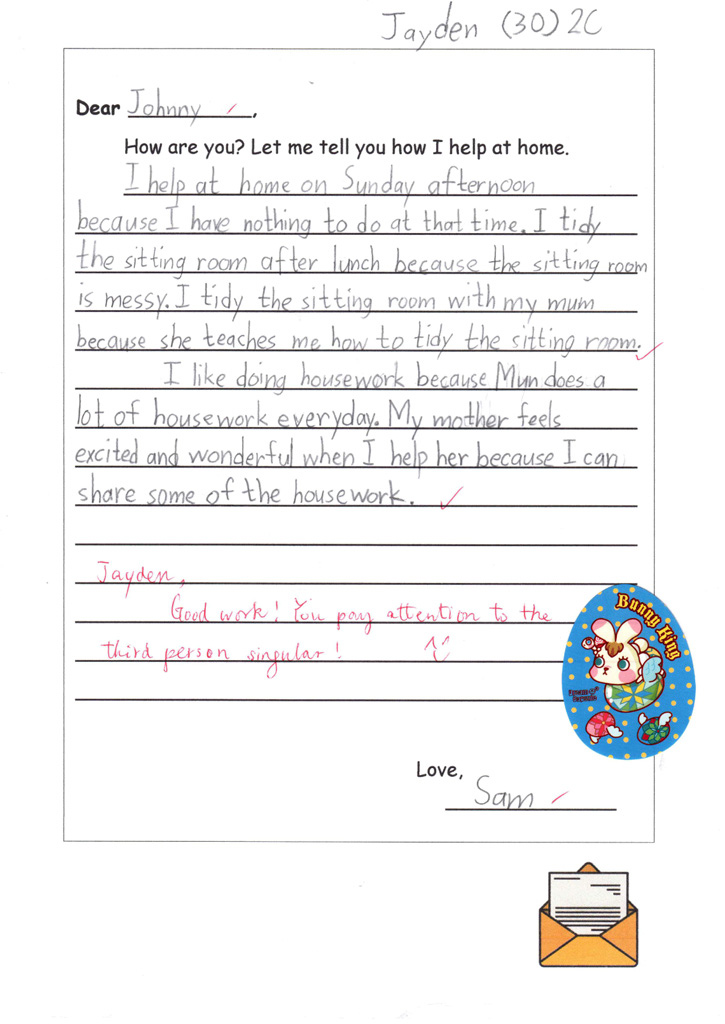 Jayden (30) 2C
Dear Johnny,
How are you? Let me tell you how I help at home.
I help at home on Sunday afternoon
because I have nothing to do at that time. I tidy
the sitting room after lunch because the sitting room
is messy. I tidy the sitting room with my mum
because she teaches me how to tidy the sitting room.
I like doing housework because Mun does a
lot of housework everyday. My mother feels
excited and wonderful when I help her because I can
share some of the housework.
Jayden,
Good work! You pay attention to the
third person singular!
Bunny King
Love,
Sam